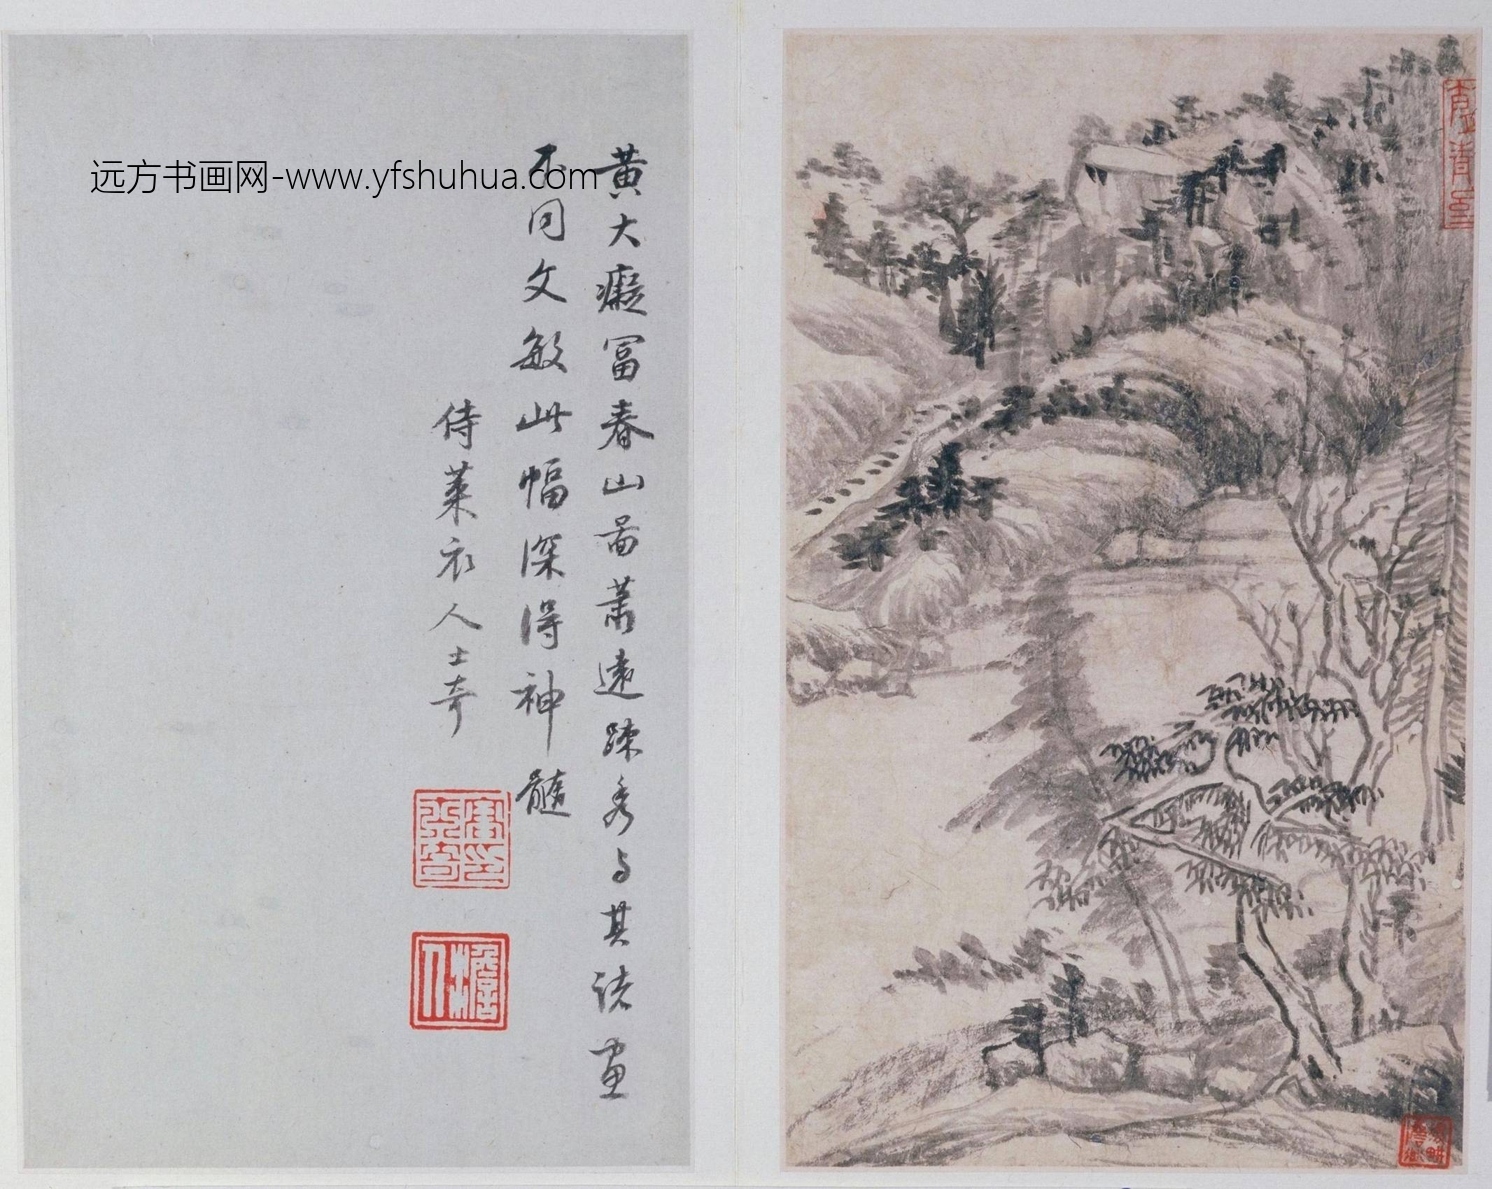 远方书画网-www.yfshuhua.com
黄大癡冨春山啚蕭遠踈秀与其诸画
不同文敏此幅深得神髓
侍萊衣人士奇